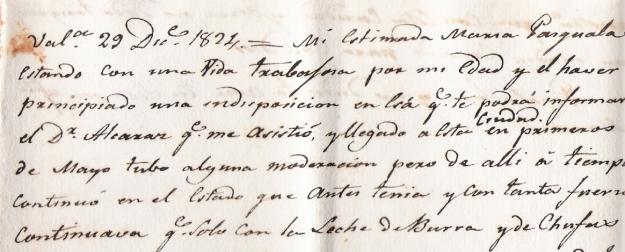 Val.ª 29 Dic.ᵉ 1824. = Mi estimada Maria Pasquala
estando con una Vida trabajosa por mi Edad y el haver
principiado una indisposicion en esa q.ᵉ te podrá informar
el D.ʳ Alcaraz q.ᵉ me asistió, y llegado a esta Ciudad en primeros
de Mayo tubo alguna moderacion pero de alli á tiempo
continuó en el Estado que antes tenia y con tanta fuerza
continuava q.ᵉ solo con la Leche de Burra y de Chufas